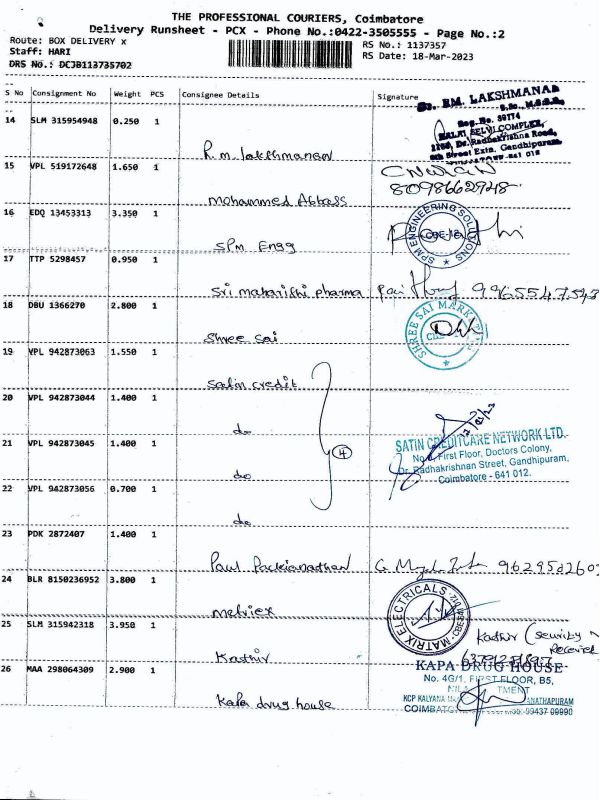 THE PROFESSIONAL COURIERS, Coimbatore
Delivery Runsheet - PCX - Phone No.:0422-3505555 - Page No.:2
Route: BOX DELIVERY x RS No.: 1137357
Staff: HARI RS Date: 18-Mar-2023
DRS No.: DCJB113735702
S No Consignment No Weight PCS Consignee Details Signature
Dr. RM. LAKSHMANAN
B.Sc., M.B.B.S.,
Reg. No. 39774
14 SLM 315954948 0.250 1
BALAJI SELVI COMPLEX,
Dr. Radhakrishna Road,
R.m. lakshmanan
Street Extn. Gandhipuram,
15 VPL 519172648 1.650 1
8098662948
mohammed Abbass
16 EDQ 13453313 3.350 1
SPM ENGINEERING SOLUTIONS
CBE-12
SPm Engg
17 TTP 5298457 0.950 1
Sri maharishi pharma 9965547543
18 DBU 1366270 2.800 1
SHREE SAI MARKETING
Shree Sai
19 VPL 942873063 1.550 1
Satin credit
20 VPL 942873044 1.400 1
do
21 VPL 942873045 1.400 1
4
SATIN CREDITCARE NETWORK LTD.
First Floor, Doctors Colony,
do
Dr. Radhakrishnan Street, Gandhipuram,
Coimbatore - 641 012.
22 VPL 942873056 0.700 1
do
23 PDK 2872407 1.400 1
Paul Packianathan
24 BLR 8150236952 3.800 1
MATRIX ELECTRICALS
metriex
25 SLM 315942318 3.950 1
Kathir (Security
Received
Kathir
26 MAA 298064309 2.900 1
KAPA DRUG HOUSE
No. 4G/1, FIRST FLOOR, B5,
KCP KALYANA
COIMBATORE
99437 09990
Kapa drug house